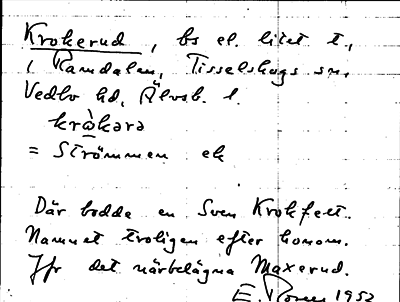 Krokerud, bs el. litet t.,
i Ramdalen, Tisselskogs sn,
Vedbo hd, Älvsb. l.
kràkərə
= Strömmen ek
Där bodde en Sven Krokfett.
Namnet troligen efter honom.
Jfr det närbelägna Maxerud.
E. 1952